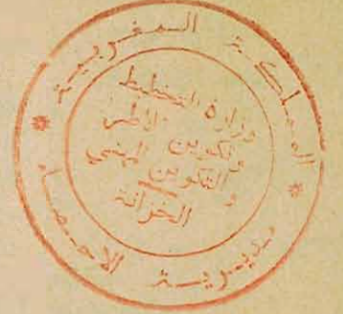 المملكة المغربية
وزارة التخطيط
وتكوين الأطر
و التكوين المهني
الخزانة
مديرية الاحصاء